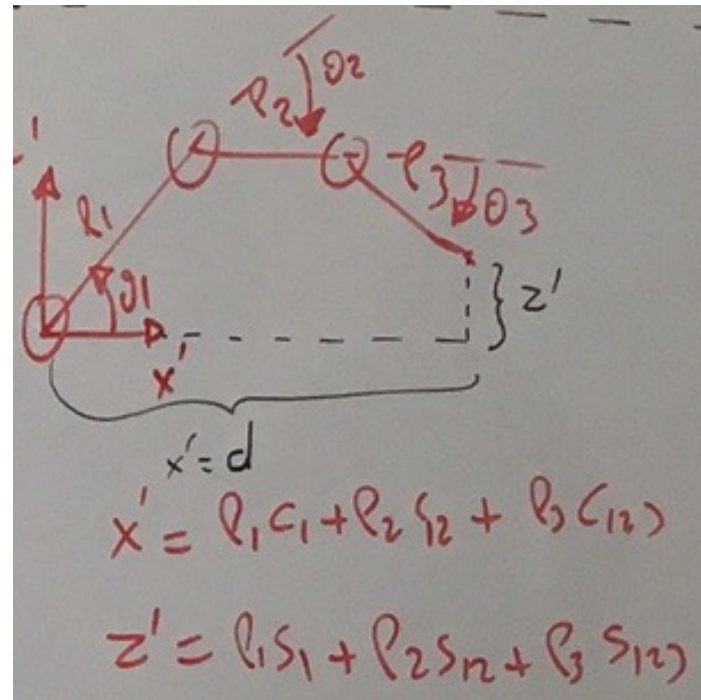 θ2
l2
l3
θ3
l1
θ1
z'
x'
x' = d
x' = l1 c1 + l2 c12 + l3 c123
z' = l1 s1 + l2 s12 + l3 s123